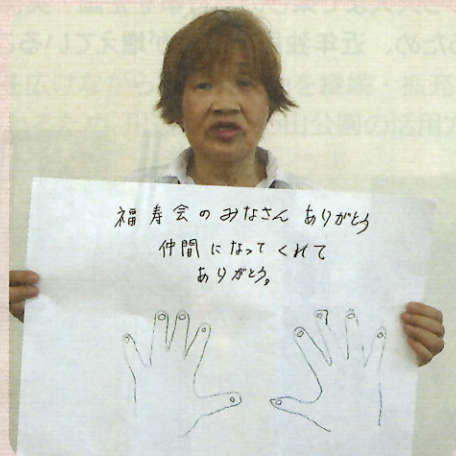 福寿会のみなさん ありがとう
仲間になってくれて
ありがとう。